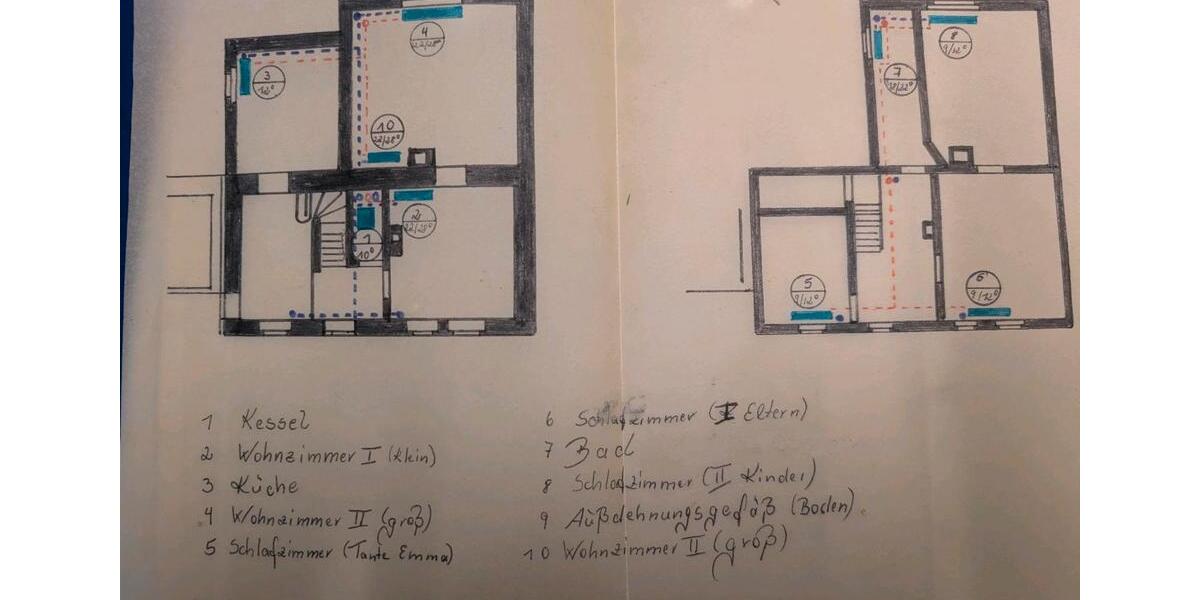 4
22/28°
3
12°
10
22/28°
2
22/28°
1
10°
8
9/12°
7
5
9/12°
6
9/12°
1 Kessel
2 Wohnzimmer I (klein)
3 Küche
4 Wohnzimmer II (groß)
5 Schlafzimmer (Tante Emma)
6 Schlafzimmer (I Eltern)
7 Bad
8 Schlafzimmer (II Kinder)
9 Außdehnungsgefäß (Boden).
10 Wohnzimmer II (groß)